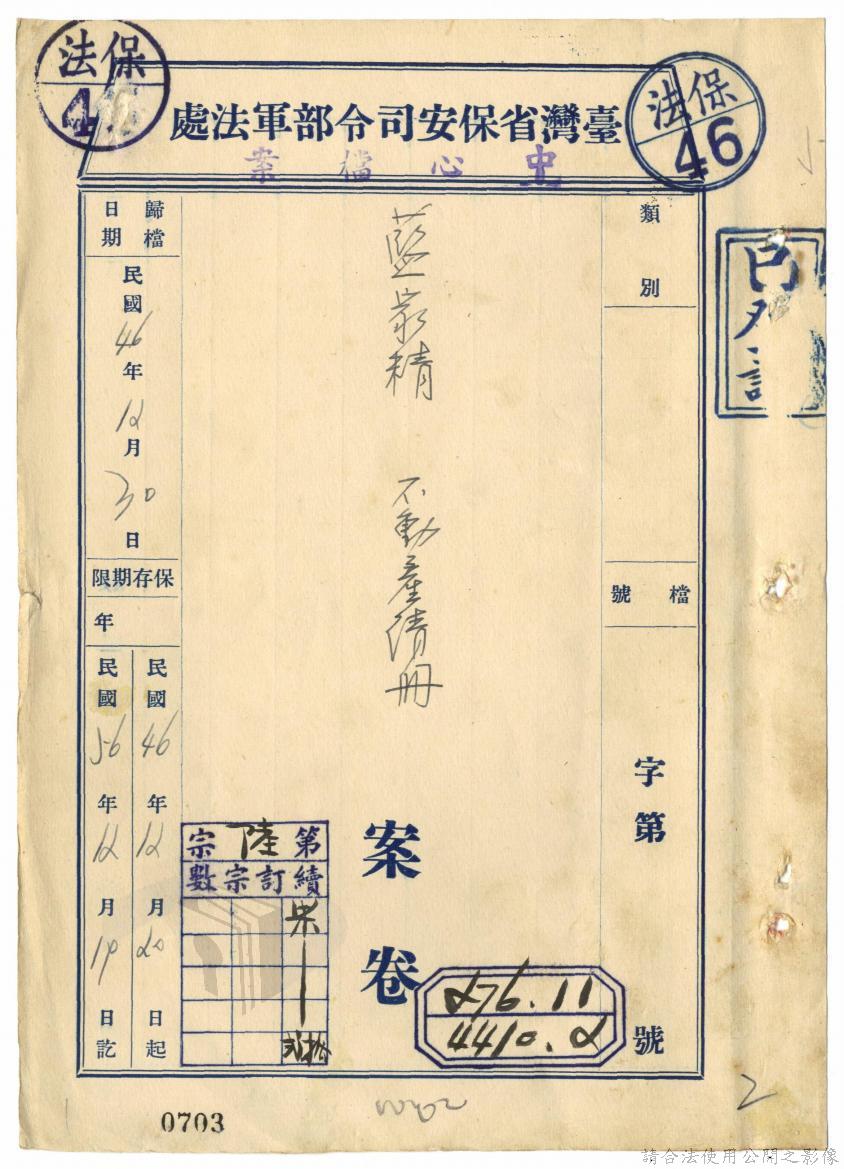 保法
46
保法
臺灣省保安司令部軍法處
中心檔案
類別
檔號
字第
號
276.11
4410.2
藍家精 不動產清冊
案卷
歸檔日期
民國46年12月30日
保存期限
年
民國46年12月20日起
民國56年12月19日訖
第陸宗
續訂宗數
2
0703
請合法使用公開之影像